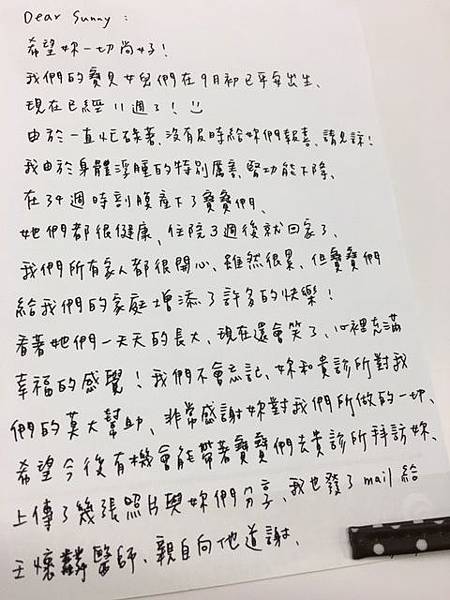 Dear Sunny :
希望妳一切尚好!
我們的寶貝女兒們在9月初已平安出生、
現在已經11週了!
由於一直忙碌著、沒有及時給妳們報喜、請見諒!
我由於身體浮腫的特別厲害、腎功能下降、
在34週時剖腹產下了寶寶們、
她們都很健康、住院3週後就回家了、
我們所有家人都很開心、雖然很累、但寶寶們
給我們的家庭增添了許多的快樂!
看著她們一天天的長大、現在還會笑了、心裡充滿
幸福的感覺!我們不會忘記、妳和貴診所對我
們的莫大幫助、非常感謝妳對我們所做的一切、
希望今後有機會能帶著寶寶們去貴診所拜訪妳、
上傳了幾張照片與妳們分享、我也發了mail給
王懷麟醫師、親自向他道謝、